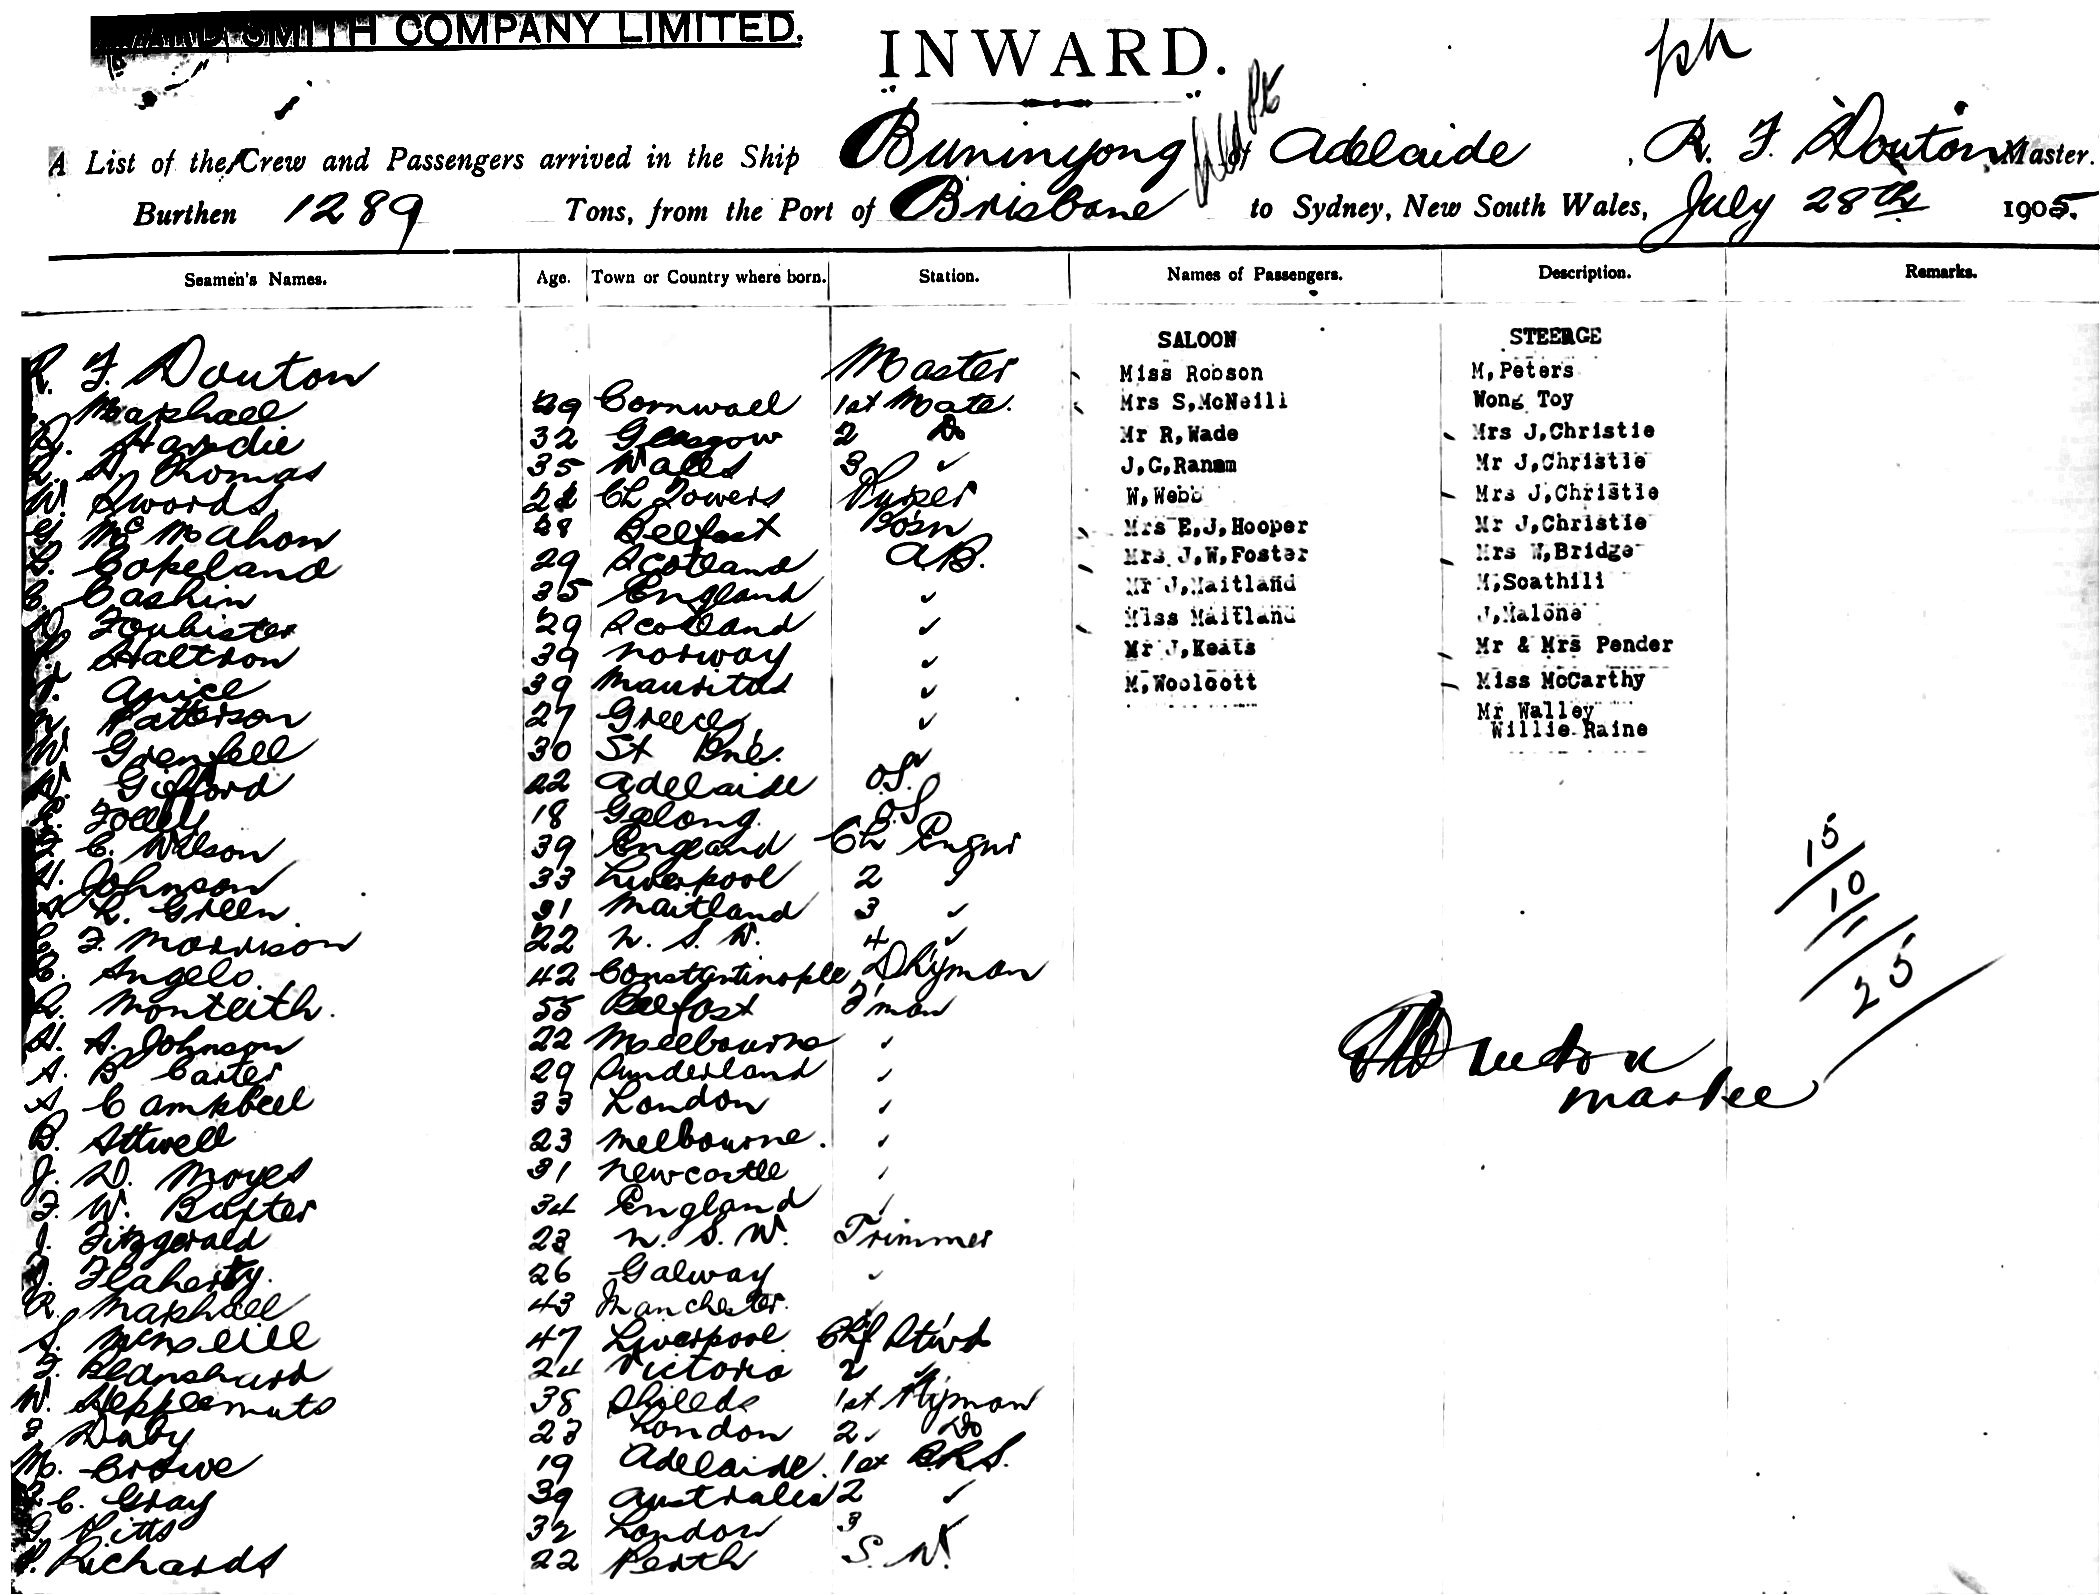 SMITH COMPANY LIMITED.
INWARD.
A List of the Crew and Passengers arrived in the Ship Buninyong Adelaide, R. F. Douton Master.
Burthen 1289 Tons, from the Port of Brisbane to Sydney, New South Wales, July 28th 1905.
Seamen's Names. Age. Town or Country where born. Station. Names of Passengers. Description. Remarks.
SALOON STEERGE
R. F. Douton Master Miss Robson M,Peters
Marshall 29 Cornwall 1st Mate. Mrs S,McNeill Wong Toy
Hardie 32 Glasgow 2 Do Mr R,Wade Mrs J,Christie
A. Thomas 35 Wales 3 ✓ J,G,Ranam Mr J,Christie
W. Swords 21 Ch Towers Purser W,Webb Mrs J,Christie
McMahon 48 Belfast Bosn Mrs E,J,Hooper Mr J,Christie
Copeland 29 Scotland A.B. Mrs J,W,Foster Mrs W,Bridge
C. Cashin 35 England ✓ Mr J,Maitland M,Scathili
Foubister 29 Scotland ✓ Miss Maitland J,Malone
Haltson 39 Norway ✓ Mr J,Keats Mr & Mrs Pender
Anice 39 Mauritus ✓ M,Woolcott Miss McCarthy
Patterson 27 Greece ✓ Mr Walley
W. Grenfell 30 St ✓ Willie Raine
W. Gifford 22 Adelaide O.S.
18 Gelong O.S
C. Wilson 39 England Ch Engnr
H. Johnson 33 Liverpool 2 ✓
R. Green. 31 Maitland 3 ✓
F. Morrison 22 N. S. W. 4 ✓
C. Angelo. 42 Constantinople Dkyman
R. Monteith. 55 Belfast F'man
H. A. Johnson 22 Melbourne ✓
A. B Carter 29 Sunderland ✓
A Campbell 33 London ✓
B. Attwell 23 Melbourne. ✓
J. D. Moyes 31 Newcastle ✓
F. W. Baxter 34 England ✓
J. Fitzgerald 23 N. S. W. Trimmer
J. Flaherty. 26 Galway ✓
R. Marshall 43 Manchester. ✓
S. McNeill 47 Liverpool Chf Stwd
F. Blanshard 24 Victoria 2 ✓
W. Hepplemuts 38 Shields 1st
F Daby 23 London 2. Do
M. Crowe 19 Adelaide. 1st B.R.S.
C. Gray 39 Australia 2 ✓
G Pitts 32 London 3 ✓
P. Richards 22 Perth S. W.
15
10
1
25
Douton
Master